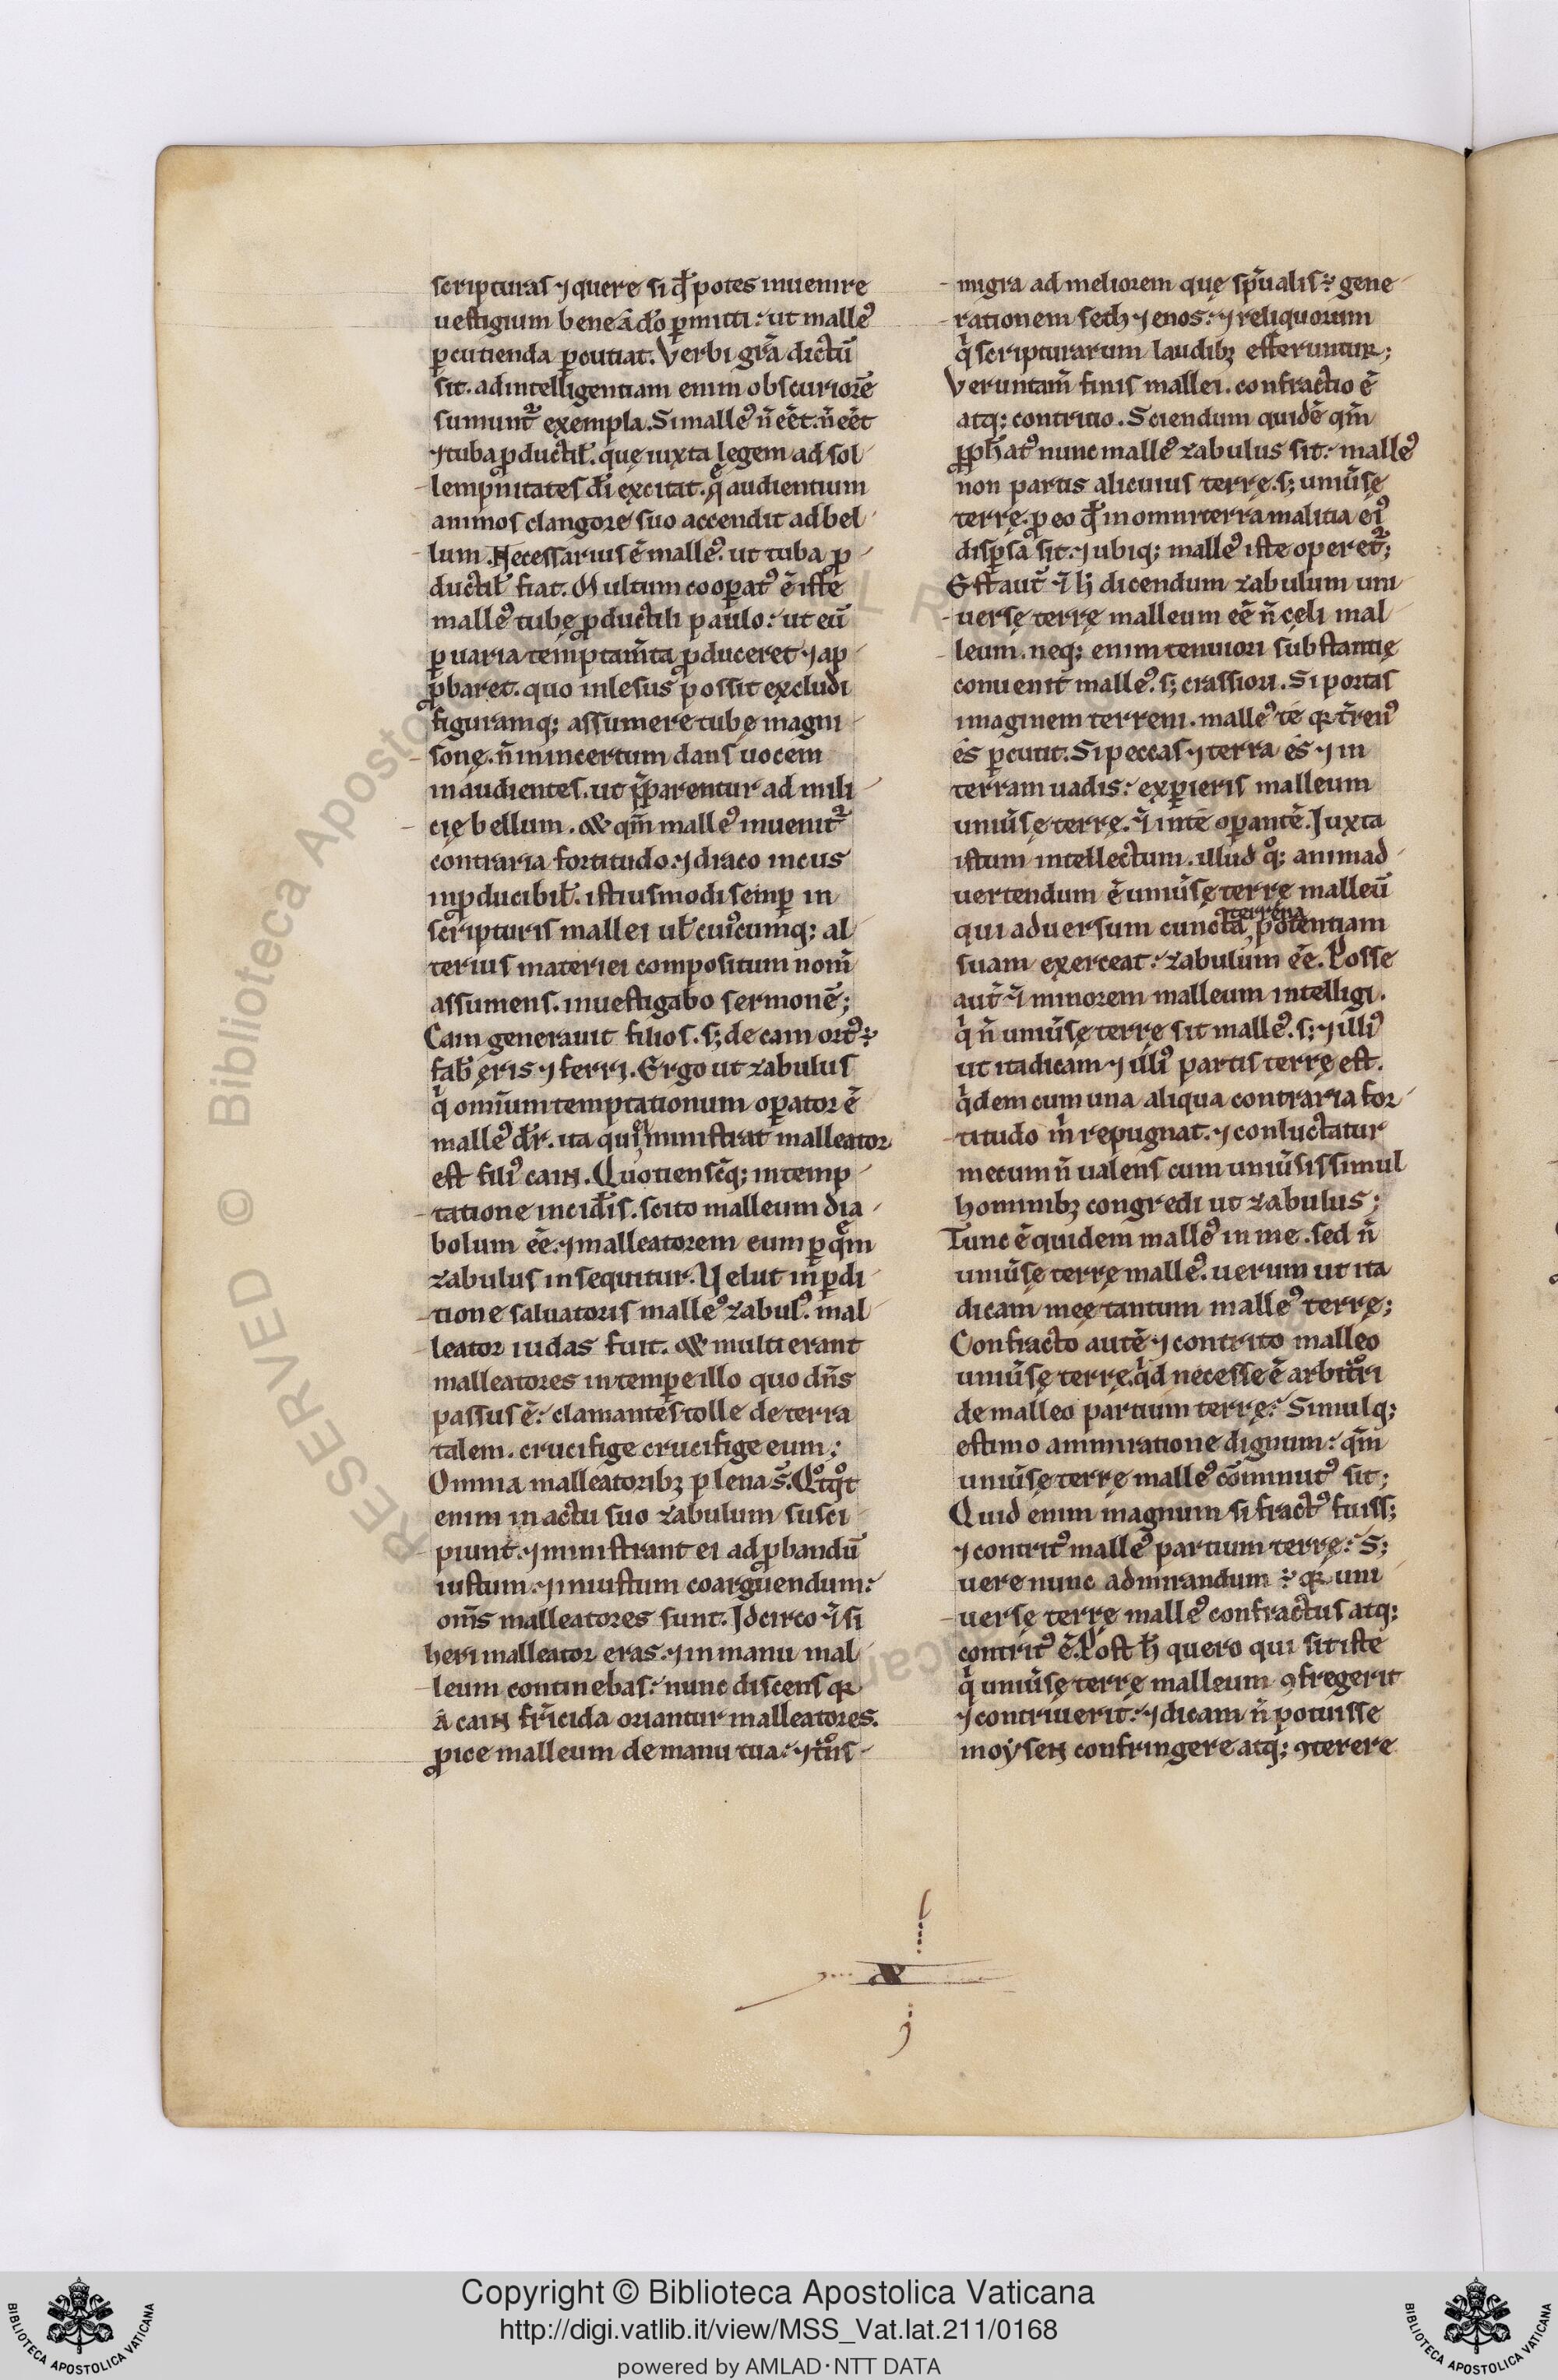 scripturas ⁊ quere si qđ potes inuenire
uestigium bene a dō ꝑmitti: ut malleꝰ
ꝑcutienda ꝑcutiat. Verbi grā dictū
sit. ad intelligentiam enim obscuriorē
sumunt᷑ exempla. Si malleꝰ n̄ eēt. n̄ eēt
⁊ tuba ꝓductił. quę iuxta legem ad sol
lempnitates dī excitat. quę audientium
animos clangore suo accendit ad bel
lum. Necessarius ē malleꝰ. ut tuba ꝓ
ductił fiat. Multum cooꝑatꝰ ē iste
malleꝰ tubę ꝓductili paulo: ut eū
ꝑ uaria temptam̄ta ꝓduceret ⁊ ap
ꝓbaret. quo inlesus possit excludi
figuramq; assumere tubę magni
sonę. n̄ in incertum dans uocem
in audientes. ut p̄parentur ad mili
cię bellum. & qm̄ malleꝰ inuenit᷑
contraria fortitudo. ⁊ draco incus
inꝓducibił. istiusmodi semꝑ in
scripturis mallei uł cuiꝰcumq; al
terius materiei compositum nom̄
assumens. inuestigabo sermonē;
Cain generauit filios. s; de cain ortꝰ ÷
fab̄ ęris ⁊ ferri. Ergo ut zabulus
qⁱ omnium temptationum oꝑator ē
malleꝰ dr̄. ita qui ministrat malleator
est filiꝰ cain. Quotienscūq; in temp
tatione incid̄is. scito malleum dia
bolum eē. ⁊ malleatorem eum ꝑ quē
zabulus insequitur. Velut in ꝓdi
tione saluatoris malleꝰ zabulꝰ. mal
leator iudas fuit. & multi erant
malleatores in tempe illo quo dn̄s
passus ē: clamantes tolle de terra
talem. crucifige crucifige eum;
Omnia malleatorib; plena s̄. Qͦtqͦt
enim in actu suo zabulum susci
piunt. ⁊ ministrant ei ad ꝓbandū
iustum. ⁊ iniustum coarguendum:
om̄s malleatores sunt. Idcirco ⁊̄ si
heri malleator eras. ⁊ in manu mal
leum continebas: nunc discens qꝛ
a cain fr̄icida oriantur malleatores.
ꝓice malleum de manu tua: ⁊ tͬns
migra ad meliorem quę sp̄ualis ÷ gene
rationem seth ⁊ enos: ⁊ reliquorum
qⁱ scripturarum laudib; efferuntur;
Veruntam̄ finis mallei. confractio ē
atq; contritio. Sciendum quidē qm̄
ꝓphatꝰ nunc malleꝰ zabulus sit: malleꝰ
non partis alicuius terrę. s; uniūsę
terrę. ꝓ eo qđ in omni terra malitia eiꝰ
disꝑsa sit. ⁊ ubiq; malleꝰ iste operet᷑;
Est aut̄ ⁊̄ h̄ dicendum zabulum uni
uersę terrę malleum eē n̄ cęli mal
leum. neq; enim tenuiori substantię
conuenit malleꝰ. s; crassiori. Si portas
imaginem terreni. malleꝰ te qꝛ t̄renꝰ
es ꝑcutit. Si peccas ⁊ terra es ⁊ in
terram uadis: exꝑieris malleum
uniūsę terrę. ⁊̄ in te oꝑantē. Iuxta
istum intellectum. illud qͦ; animad
uertendum ē uniūsę terrę malleū
qui aduersum cuncta terrena potentiam
suam exerceat: zabulum eē. Posse
aut̄ ⁊̄ minorem malleum intelligi.
qⁱ n̄ uniūsę terrę sit malleꝰ. s; ⁊ illiꝰ
ut ita dicam ⁊ illiꝰ partis terrę est.
qⁱdem cum una aliqua contraria for
titudo m̄ repugnat. ⁊ conluctatur
mecum n̄ ualens cum uniūsis simul
hominib; congredi ut zabulus;
Tunc ē quidem malleꝰ in me. sed n̄
uniūsę terrę malleꝰ. uerum ut ita
dicam meę tantum malleꝰ terrę;
Confracto autē ⁊ contrito malleo
uniūsę terrę. qⁱd necesse ē arbitͬri
de malleo partium terrę: Simulq;
estimo ammiratione dignum: qm̄
uniūsę terrę malleꝰ cōminutꝰ sit;
Quid enim magnum si fractꝰ fuiss;
⁊ contritꝰ malleꝰ partium terrę: S;
uere nunc admirandum ÷ qꝛ uni
uersę terrę malleꝰ confractus atq;
contritꝰ ē. Post h̄ quero qui sit iste
qⁱ uniūsę terrę malleum ꝯfregerit
⁊ contriuerit: ⁊ dicam n̄ potuisse
moysen confringere atq; ꝯterere
x
RESERVED © Biblioteca Apostolica Vaticana
Copyright © Biblioteca Apostolica Vaticana
http://digi.vatlib.it/view/MSS_Vat.lat.211/0168
powered by AMLAD·NTT DATA
BIBLIOTECA APOSTOLICA VATICANA
BIBLIOTECA APOSTOLICA VATICANA